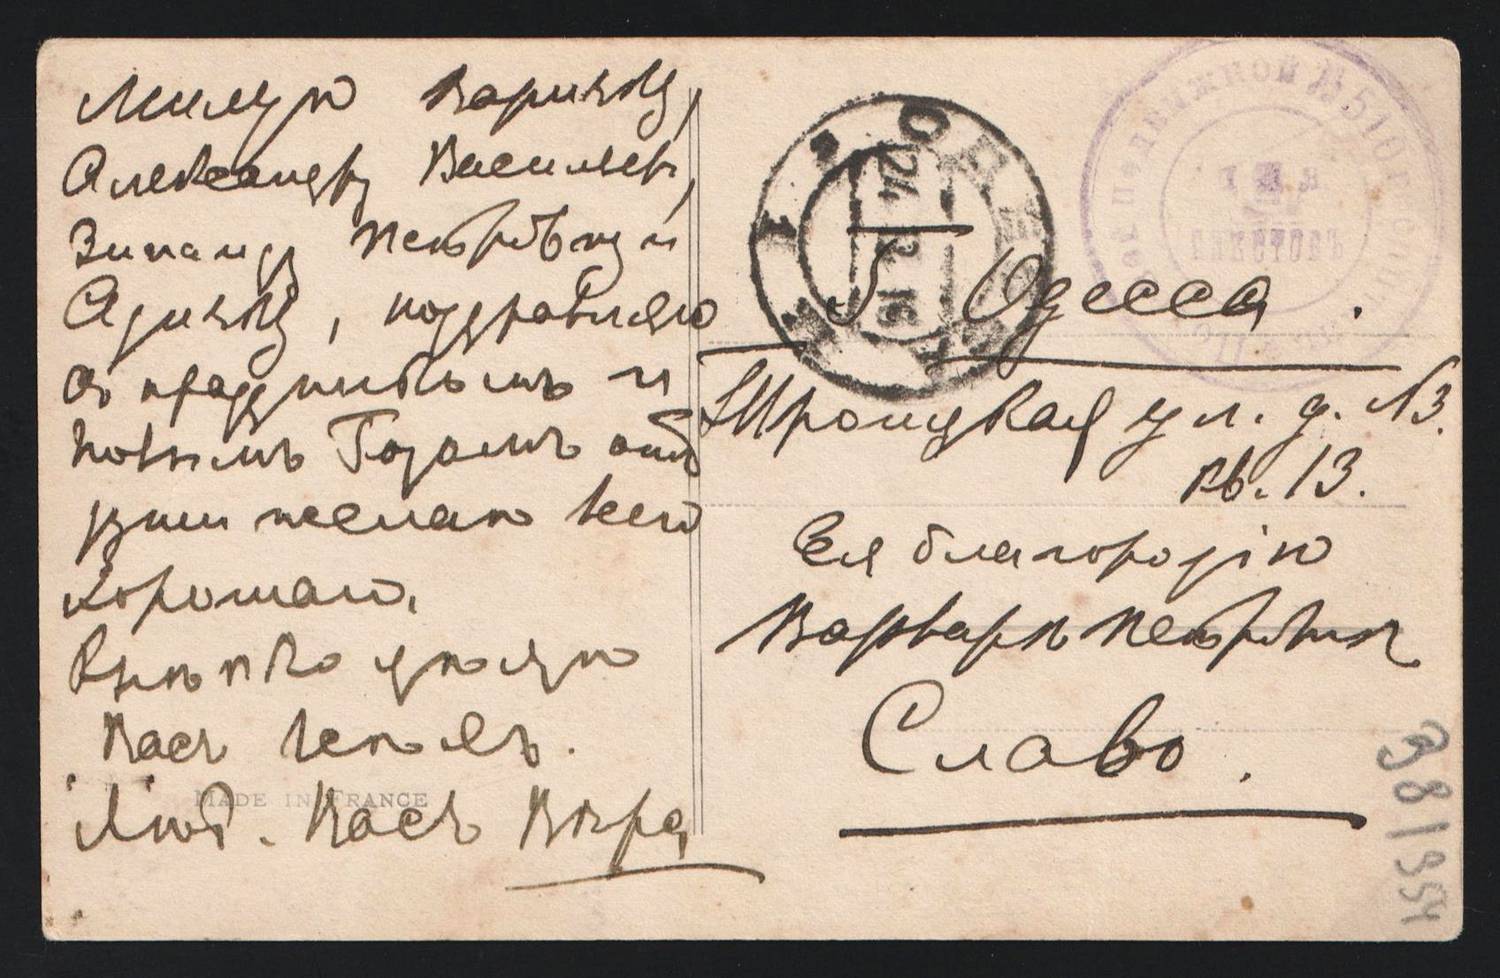 Милую Варичку,
Александру Васильев.,
Зинаиду Петровну и
Адичку, поздравляю
съ праздникомъ и
Новымъ Годомъ отъ
души желаю всего
хорошаго.
Крѣпко цѣлую
Васъ всѣхъ.
Люб. Васъ Вѣра
MADE IN FRANCE
ОДЕССА
24 12 16
г. Одесса.
Троицкая ул. д. №3.
кв. 13.
Ея благородію
Варварѣ Петровнѣ
Славо.
381954